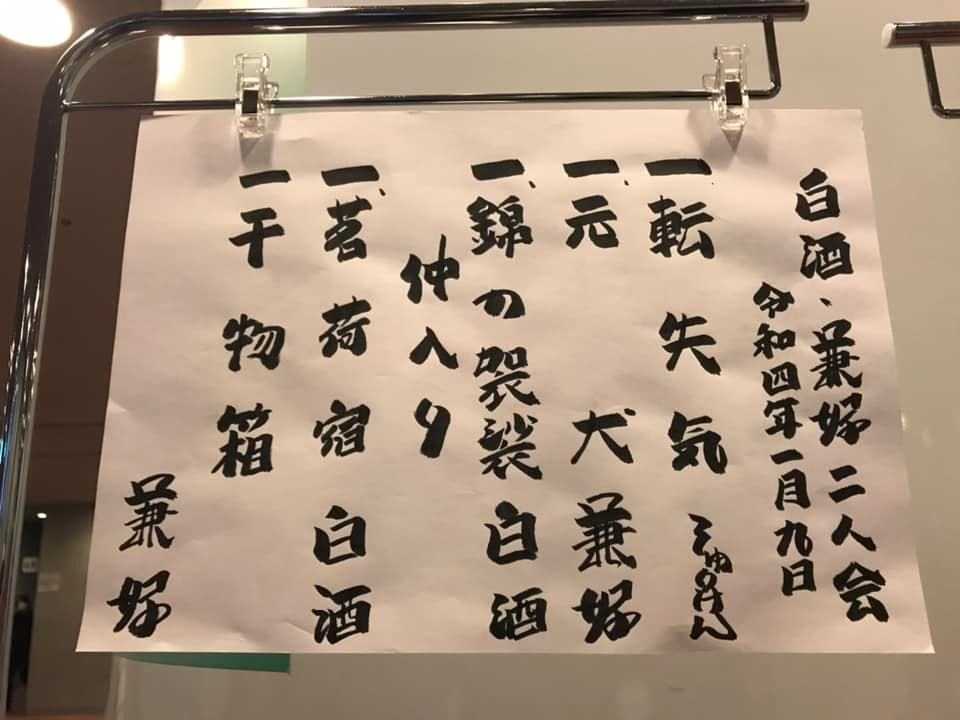 白酒、兼好 二人会
令和四年一月九日
一、転失気
一、元犬 兼好
一、錦の袈裟 白酒
仲入り
一、茗荷宿 白酒
一、干物箱
兼好